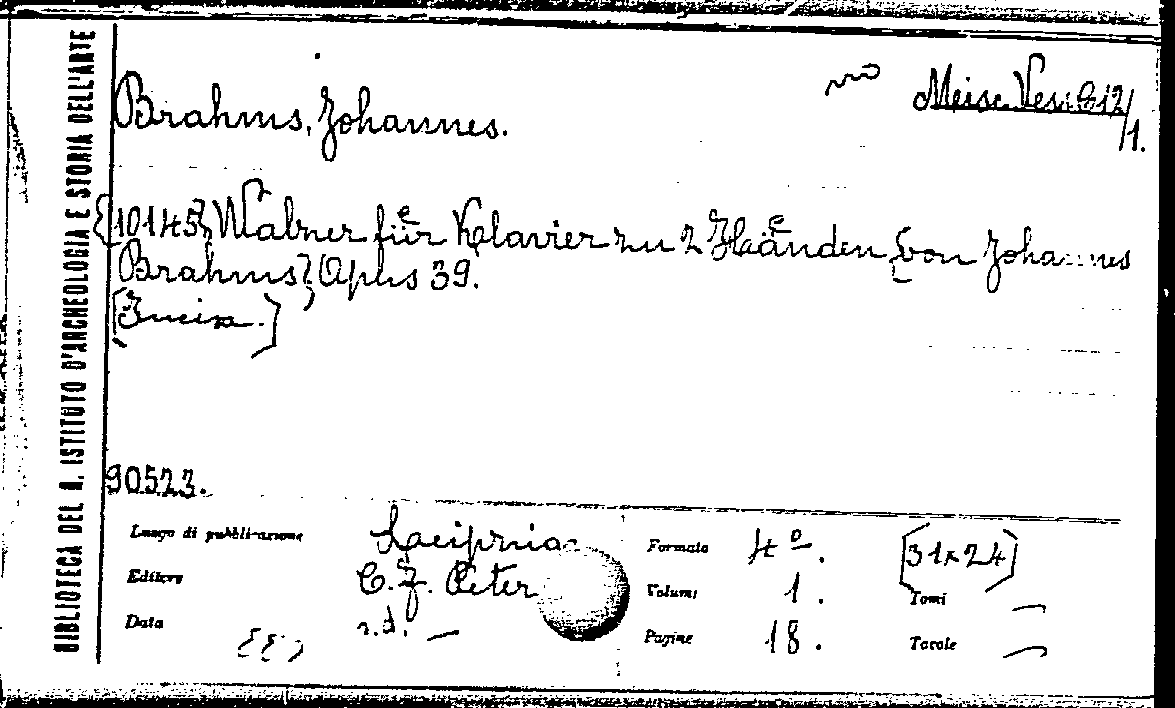 BIBLIOTECA DEL R. ISTITUTO D'ARCHEOLOGIA E STORIA DELL'ARTE
Brahms, Johannes.
{10145} Walzer für Klavier zu 2 Händen [von Johannes
Brahms] Opus 39.
90523.
Luogo di pubblicazione Lacipzia
Formato 4º. [31×24]
Editore C. F. Peter
Volumi 1. Tomi —
Data s.d. —
Pagine 18. Tavole —